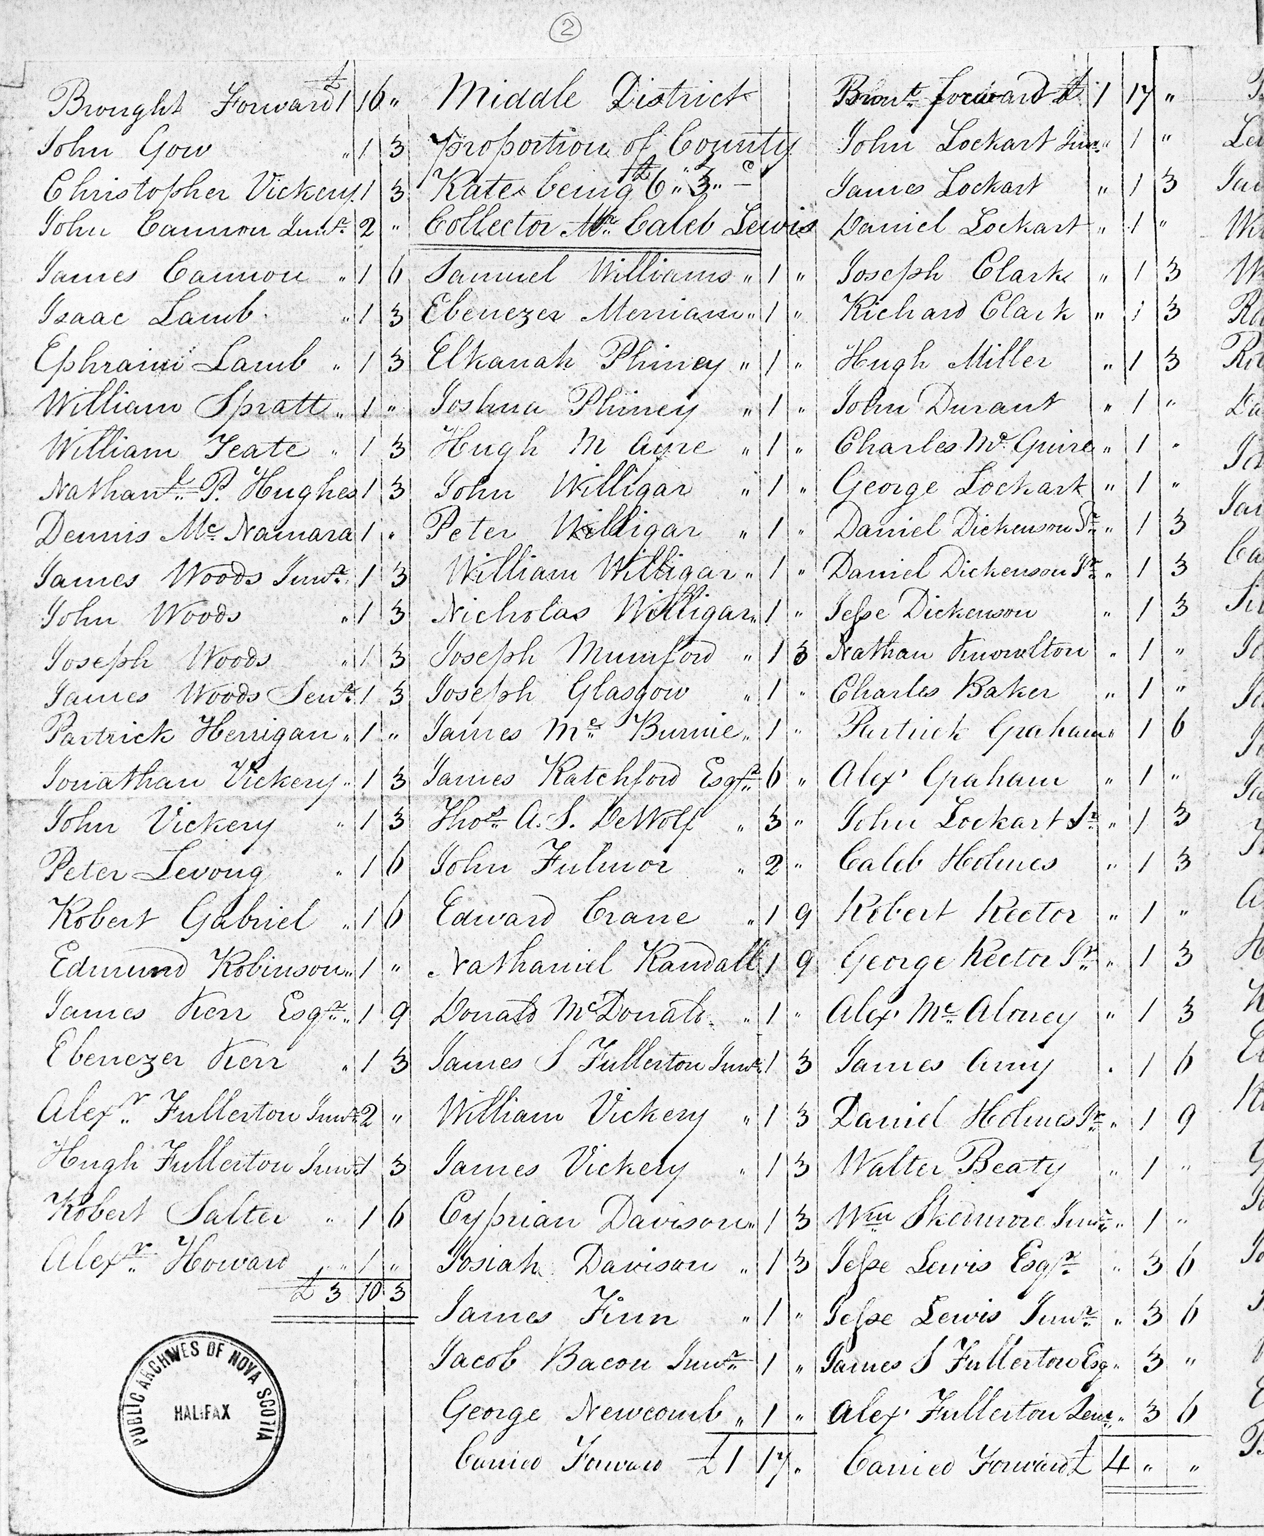 2
Brought Forward £1 16 "
John Gow " 1 3
Christopher Vickery 1 3
John Cannon Junr. 2 "
James Cannon " 1 6
Isaac Lamb " 1 3
Ephraim Lamb " 1 3
William Spratt " 1 "
William Teate " 1 3
Nathanl. P. Hughes 1 3
Dennis Mc. Namara 1 "
James Woods Junr. 1 3
John Woods " 1 3
Joseph Woods " 1 3
James Woods Senr. 1 3
Partrick Herrigan " 1 "
Jonathan Vickery " 1 3
John Vickery " 1 3
Peter Levong " 1 6
Robert Gabriel " 1 6
Edmund Robinson " 1 "
James Kerr Esqr. " 1 9
Ebenezer Kerr " 1 3
Alexr. Fullerton Junr. 2 "
Hugh Fullerton Junr. 1 3
Robert Salter " 1 6
Alexr. Howard " 1 "
£3 10 3
PUBLIC ARCHIVES OF NOVA SCOTIA
HALIFAX
Middle District
Proportion of County
Rates being £6 " 3 " -
Collector Mr. Caleb Lewis
Samuel Williams " 1 "
Ebenezer Merriam " 1 "
Elkanah Phiney " 1 "
Joshua Phiney " 1 "
Hugh M Ayre " 1 "
John Willigar " 1 "
Peter Willigar " 1 "
William Willigar " 1 "
Nicholas Willigar " 1 "
Joseph Mumford " 1 3
Joseph Glasgow " 1 "
James Mc. Burnie " 1 "
James Ratchford Esqr. " 6 "
Thos. A. S. DeWolf " 3 "
John Fulmor " 2 "
Edward Crane " 1 9
Nathaniel Randall 1 9
Donald McDonald " 1 "
James S Fullerton Junr. 1 3
William Vickery " 1 3
James Vickery " 1 3
Cyprian Davison " 1 3
Josiah Davison " 1 3
James Finn " 1 "
Jacob Bacon Junr. 1 "
George Newcomb " 1 "
Carried Forward £1 17 "
Brout. forward £1 17 "
John Lockart Junr. 1 "
James Lockart " 1 3
Daniel Lockart " 1 "
Joseph Clark " 1 3
Richard Clark " 1 3
Hugh Miller " 1 3
John Durant " 1 "
Charles Mc. Guire 1 "
George Lockart " 1 "
Daniel Dickenson Sr. " 1 3
Daniel Dickenson Jr. " 1 3
Jesse Dickenson " 1 3
Nathan Knowlton " 1 "
Charles Baker " 1 "
Partrick Graham " 1 6
Alexr Graham " 1 "
John Lockart Sr. " 1 3
Caleb Holmes " 1 3
Robert Rector " 1 "
George Rector Jr. " 1 3
Alexr Mc. Aloney " 1 3
James Amy " 1 6
Daniel Holmes Jr. " 1 9
Walter Beaty " 1 "
Wm. Skedmore Junr. " 1 "
Jesse Lewis Esqr. " 3 6
Jesse Lewis Junr. " 3 6
James S Fullerton Esq " 3 "
Alexr Fullerton Senr. " 3 6
Carried Forward £ 4 " "